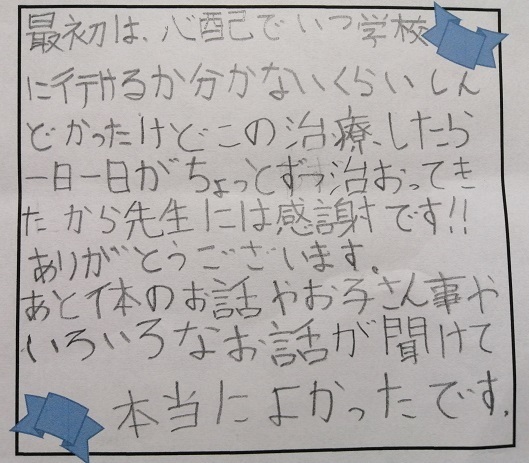 最初は、心配でいつ学校
に行けるか分かないくらいしん
どかったけどこの治療したら
一日一日がちょっとずつ治おってき
たから先生には感謝です!!
ありがとうございます。
あと体のお話やお子さん事や
いろいろなお話が聞けて
本当によかったです。